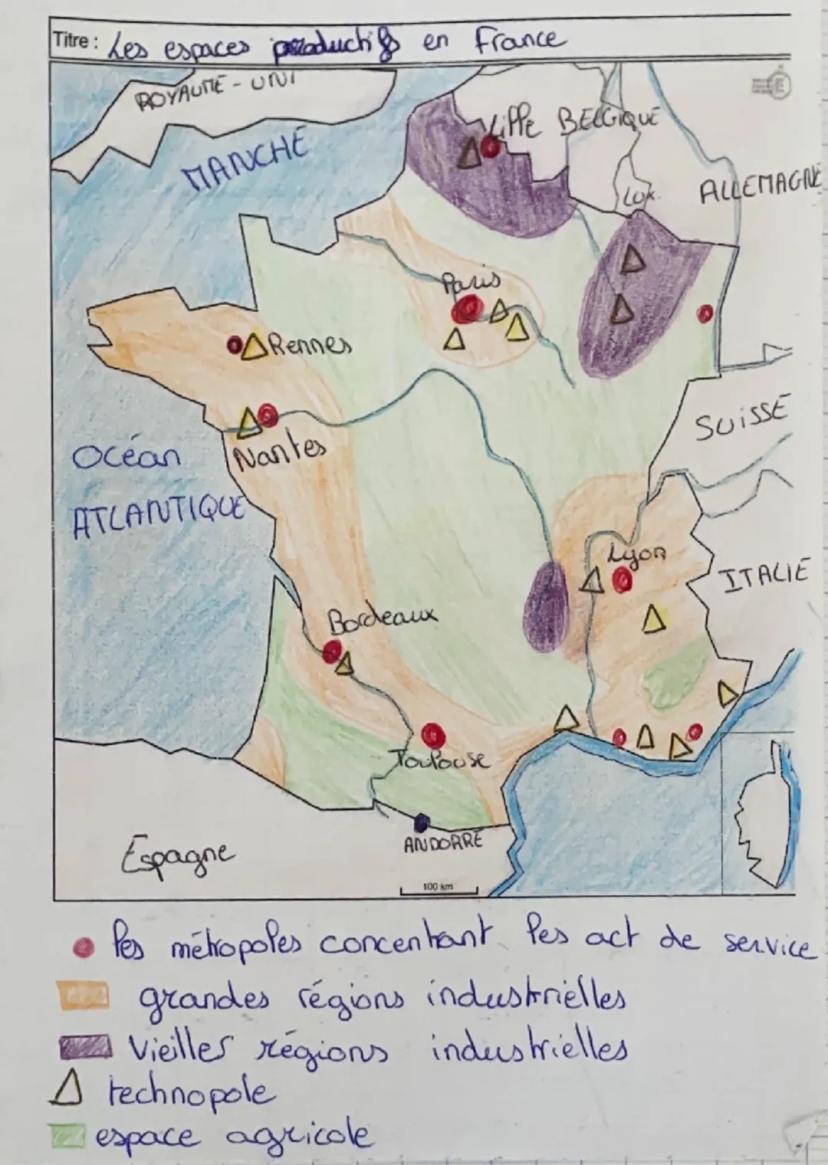 Titre : Les espaces productifs en France
ROYAUME-UNI
MANCHE
Lille
BELGIQUE
Lux.
ALLEMAGNE
Paris
Rennes
Nantes
SUISSE
Océan
ATLANTIQUE
Lyon
ITALIE
Bordeaux
Toulouse
ANDORRE
Espagne
100 km
les métropoles concentrant les act de service
grandes régions industrielles
Vieilles régions industrielles
technopole
espace agricole